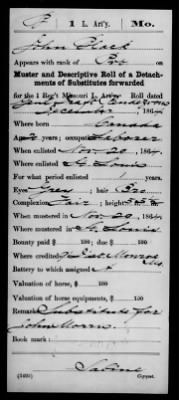 1 L. Art'y. Mo.
John Clark
Appears with rank of Pvt
Muster and Descriptive Roll of a Detachment
of Substitutes forwarded
for the 1 Reg't Missouri L. Art'y. Roll dated
December , 1864.
Where born Canada
Age y'rs; occupation Laborer
When enlisted Nov. 20, 1864.
Where enlisted St. Louis
For what period enlisted 1 years.
Eyes Grey ; hair Bro
Complexion Fair ; height ft. in.
When mustered in Nov. 20, 1864.
Where mustered in St. Louis
Bounty paid $ 100; due $ 100
Where credited Monroe
Battery to which assigned A
Valuation of horse, $ 100
Valuation of horse equipments, $ 100
Remarks: Substitute for
John Morris.
Book mark:
Copyist.